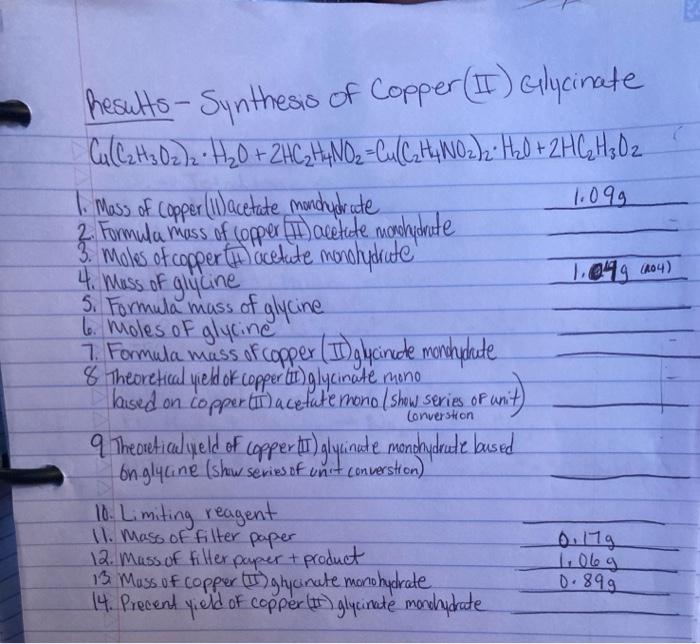 Results - Synthesis of Copper (II) Glycinate
Cu(C₂H₃O₂)₂·H₂O + 2HC₂H₄NO₂ = Cu(C₂H₄NO₂)₂·H₂O + 2HC₂H₃O₂
1. Mass of copper (II) acetate monohydrate 1.09g
2. Formula mass of copper (II) acetate monohydrate
3. Moles of copper (II) acetate monohydrate
4. Mass of glycine 1.04g (1.04)
5. Formula mass of glycine
6. Moles of glycine
7. Formula mass of copper (II) glycinate monohydrate
8 Theoretical yield of copper (II) glycinate mono
based on copper (II) acetate mono (show series of unit)
converstion
9 Theoretical yeld of copper (II) glycinate monohydrate based
on glycine (show series of unit converstion)
10. Limiting reagent
11. Mass of filter paper 0.17g
12. Mass of filter paper + product 1.06g
13 Mass of copper (II) glycinate monohydrate 0.89g
14. Precent yield of copper (II) glycinate monohydrate